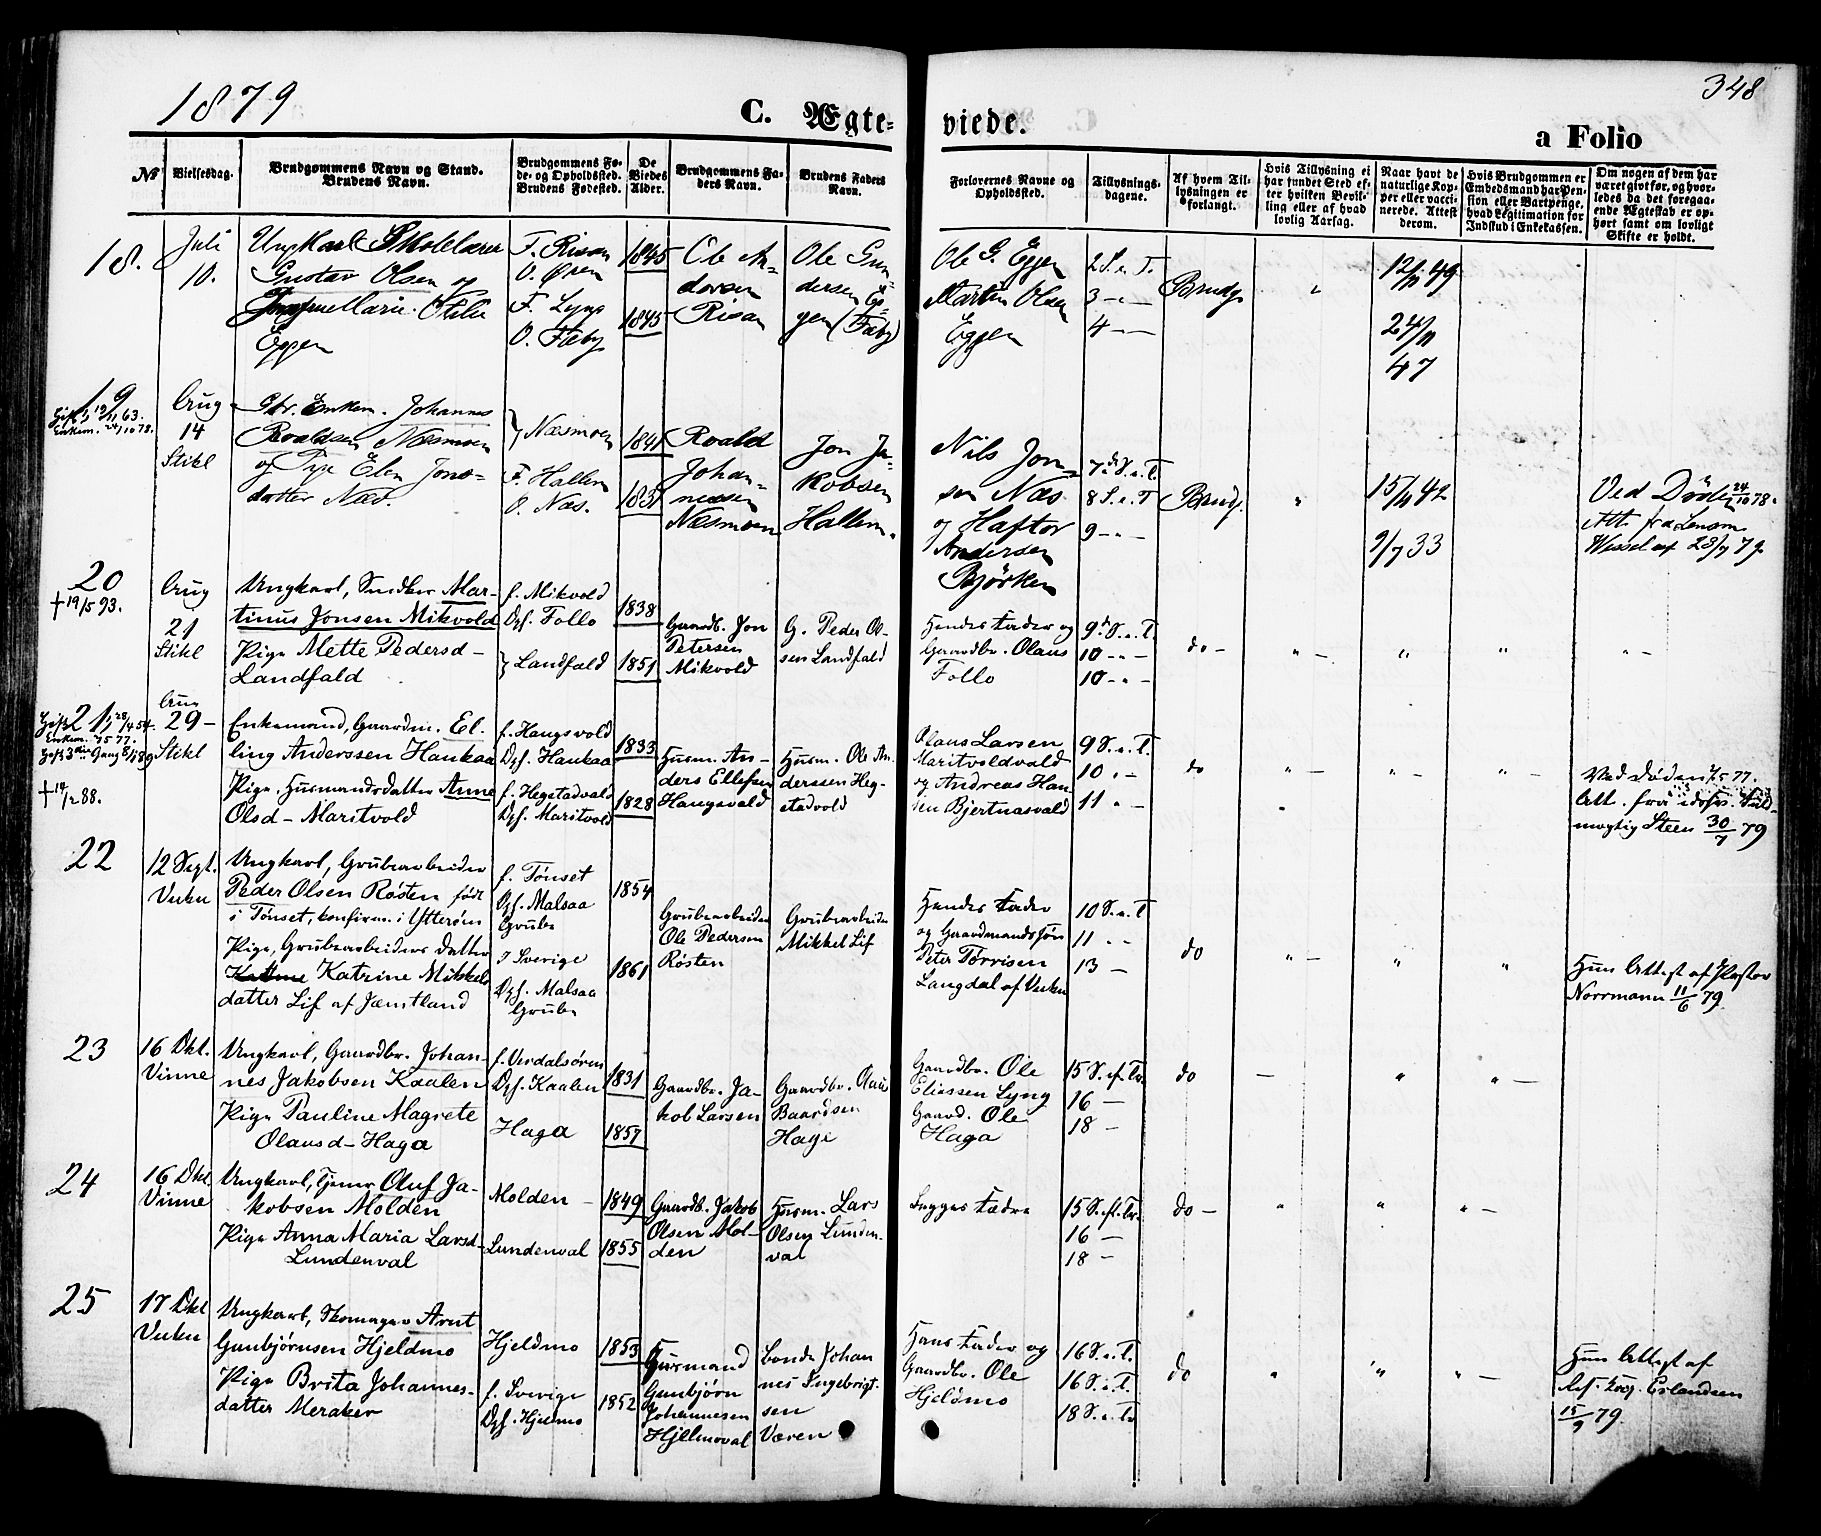 1879
348
C. Ægte-
viede.
a Folio
No
Vielsesdag.
Brudgommens Navn og Stand.
Brudens Navn.
Brudgommens Fø-
de- og Opholdssted.
Brudens Fødested.
De
Viedes
Alder.
Brudgommens Fa-
ders Navn.
Brudens Faders
Navn.
Forlovernes Navne og
Opholdssted.
Tillysnings-
dagene.
Af hvem Til-
lysningen er
forlangt.
Hvis Tillysning ei
har fundet Sted ef-
ter hvilken Bevil-
ling eller af hvad
lovlig Aarsag.
Naar havt de
naturlige Kop-
per eller vacci-
nerede. Attest
derom.
Hvis Brudgommen er
Embedsmand har Pen-
sion eller Vartpenge,
hvad Legitimation for
Indskud i Enkekassen.
Om nogen af dem har
været givt før, og hvor-
ledes da det foregaa-
ende Ægteskab er op-
hørt samt om lovligt
Skifte er holdt.
18.
Juli
10.
Ungkarl Skolelærer
Gustav Olsen og
Marie Otilie
Eggen
F. Risan
O. Øren
F. Lyng
O. Fæby
1845
1845
Ole An-
dersen
Risan
Ole Gun-
dersen Eg-
gen (Fæby)
Ole G. Eggen
Martin Olsen
Eggen
2 S. e. T.
3 - " -
4 - -
Brudg.
"
12/11 49
24/11
47
19
Gift 1, 63.
Enkem. 24/10 78.
Aug
14
Stikl
Enkem. Johannes
Roaldsen Næsmoen
og Pige Elen Jons-
datter Næs.
} Næsmoen
F. Hallem
O. Næs.
1841
1831
Roald
Johan-
nessen
Næsmoen
Jon Ja-
kobsen
Hallem.
Nils Jon-
sen Næs.
og Haftor
Andersen
Bjørken
7de S. e. T.
8 S. e. T
9 - " -
Brudg.
"
15/11 42
9/7 33
Ved Døden 24/10 78.
Att. fra Lensm.
Wessel af 28/7 79
20
† 19/5 93.
Aug
21
Stikl
Ungkarl, Snedker Mar-
tinus Jonsen Mikvold
Pige Mette Pedersd -
Landfald
f. Mikvold
Opf. Follo
} Landfald
1838
1851
Gaardb. Jon
Petersen
Mikvold
G. Peder Ol-
sen Landfald
Hendes Fader og
Gaardbr. Olaus
Follo
9de S. e. T.
10 - " -
10 - " -
do -
" -
"
"
" -
21
Enkem. 7/5 77.
† 14/2 88.
Aug
29 -
Stikl
Enkemand, Gaardm. El-
ling Anderssen Haukaa
Pige, Husmandsdatter Anne
Olsd - Maritvold
f. Haugsvold
Opf. Haukaa
f. Hegstadvald
Opf. Maritvold
1833
1828
Husm. An-
ders Ellefsen
Haugsvald
Husm. Ole An-
derssen Heg-
stadvold
Olaus Larsen
Maritvoldvald
og Andreas Han-
sen Bjertnasvald
9 S. e. T.
10 " -
11 " -
do
" -
"
" -
" -
Ved Døden 7/5 77.
Att. fra Fuld-
mægtig Steen 30/7 79
22
12 Sept.
Vuku
Ungkarl, Grubearbeider
Peder Olsen Røsten født
i Tønset, konfirm. i Ytterøen
Pige, Grubearbeiders datter
Katrine Mikkels
datter Lif af Jæmtland
f. Tønset
Opf. Malsaa
Grube
f Sverige
Opf. Malsaa
Grube
1854
1861
Grubearbeider
Ole Pedersen
Røsten
Grubearbeider
Mikkel Lif
Hendes Fader
og Gaardmandssøn
Peter Torrisen
Langdal af Vuku
10 S. e. T
11 " "
13 -
do
" -
"
"
Hun Attest af Pastor
Norrmann 11/6 79.
23
16 Okt.
Vinne
Ungkarl, Gaardbr. Johan-
nes Jakobsen Kaalen
Pige Pauline Magrete
Olausd - Haga
f. Verdalsøren
Opf. Kaalen
Haga
1831
1857
Gaardbr. Ja-
kob Larsen
Gaardbr. Olaus
Baardsen
Hage
Gaardbr. Ole
Eliassen Lyng
Gaard. Ole
Haga
15 S. ef. Tr.
16 -
18 -
do
-
"
" -
24
16 Okt
Vinne
Ungkarl, Tjener Oluf Ja-
kobsen Molden
Pige Anna Maria Larsd-
Lundenval
Molden -
Lundenval
1849
1855
Gaardb. Jakob
Olsen Mol-
den
Husm. Lars
Olsen Lunden-
val
Begges Fædre
15 S. ef. Tr.
16 -
18 -
do -
"
"
" -
25
17 Okt
Vuku
Ungkarl, Skomager Arnt
Gunbjørnsen Hjeldmo
Pige Brita Johannes-
datter Meraker
Hjeldmo
f. Sverige
Opf. Hjelmo
1853
1852
Husmand
Gunbjørn
Johannesen
Hjelmoval
Bonde Johan
nes Ingebrigt-
sen
Væren
Hans Fader og
Gaardbr. Ole
Hjelsmo
16 S. e. T.
16 S. e. T.
18 S. e. Tr
do
"
"
" -
Hun Attest af
Erlandsen
15/9 79